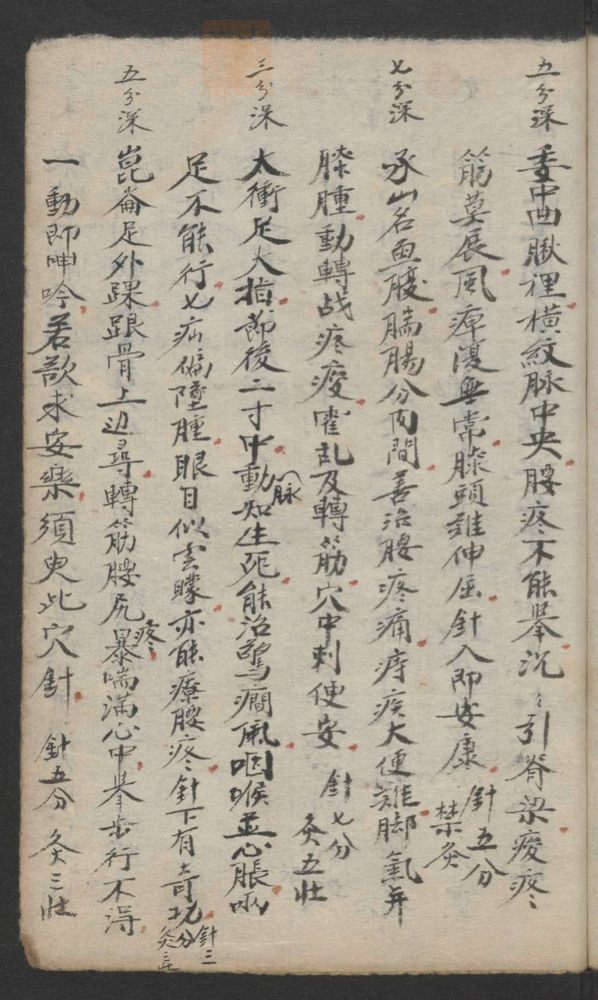 五分深 委中曲䐐裡橫紋脉中央腰疼不能舉沉〻引脊梁痠疼
筋莫展風痺復無常膝頭難伸屈針入即安康 針五分 禁灸
七分深 承山名魚腹腨腸分肉間善治腰疼痛痔疾大便難脚氣并
膝腫動轉战疼痠霍乱及轉筋穴中刺便安 針七分 灸五壯
三分深 太衝足大指節後二寸中動脉知生死能治驚癇風咽喉並心脹兩
足不能行七疝偏墜腫眼目似雲矇亦能療腰疼針下有奇功 針三分 灸三壯
五分深 崑崙足外踝跟骨上边尋轉筋腰尻疼暴喘滿心中舉步行不得
一動即呻吟若欲求安樂須臾此穴針 針五分 灸三壯